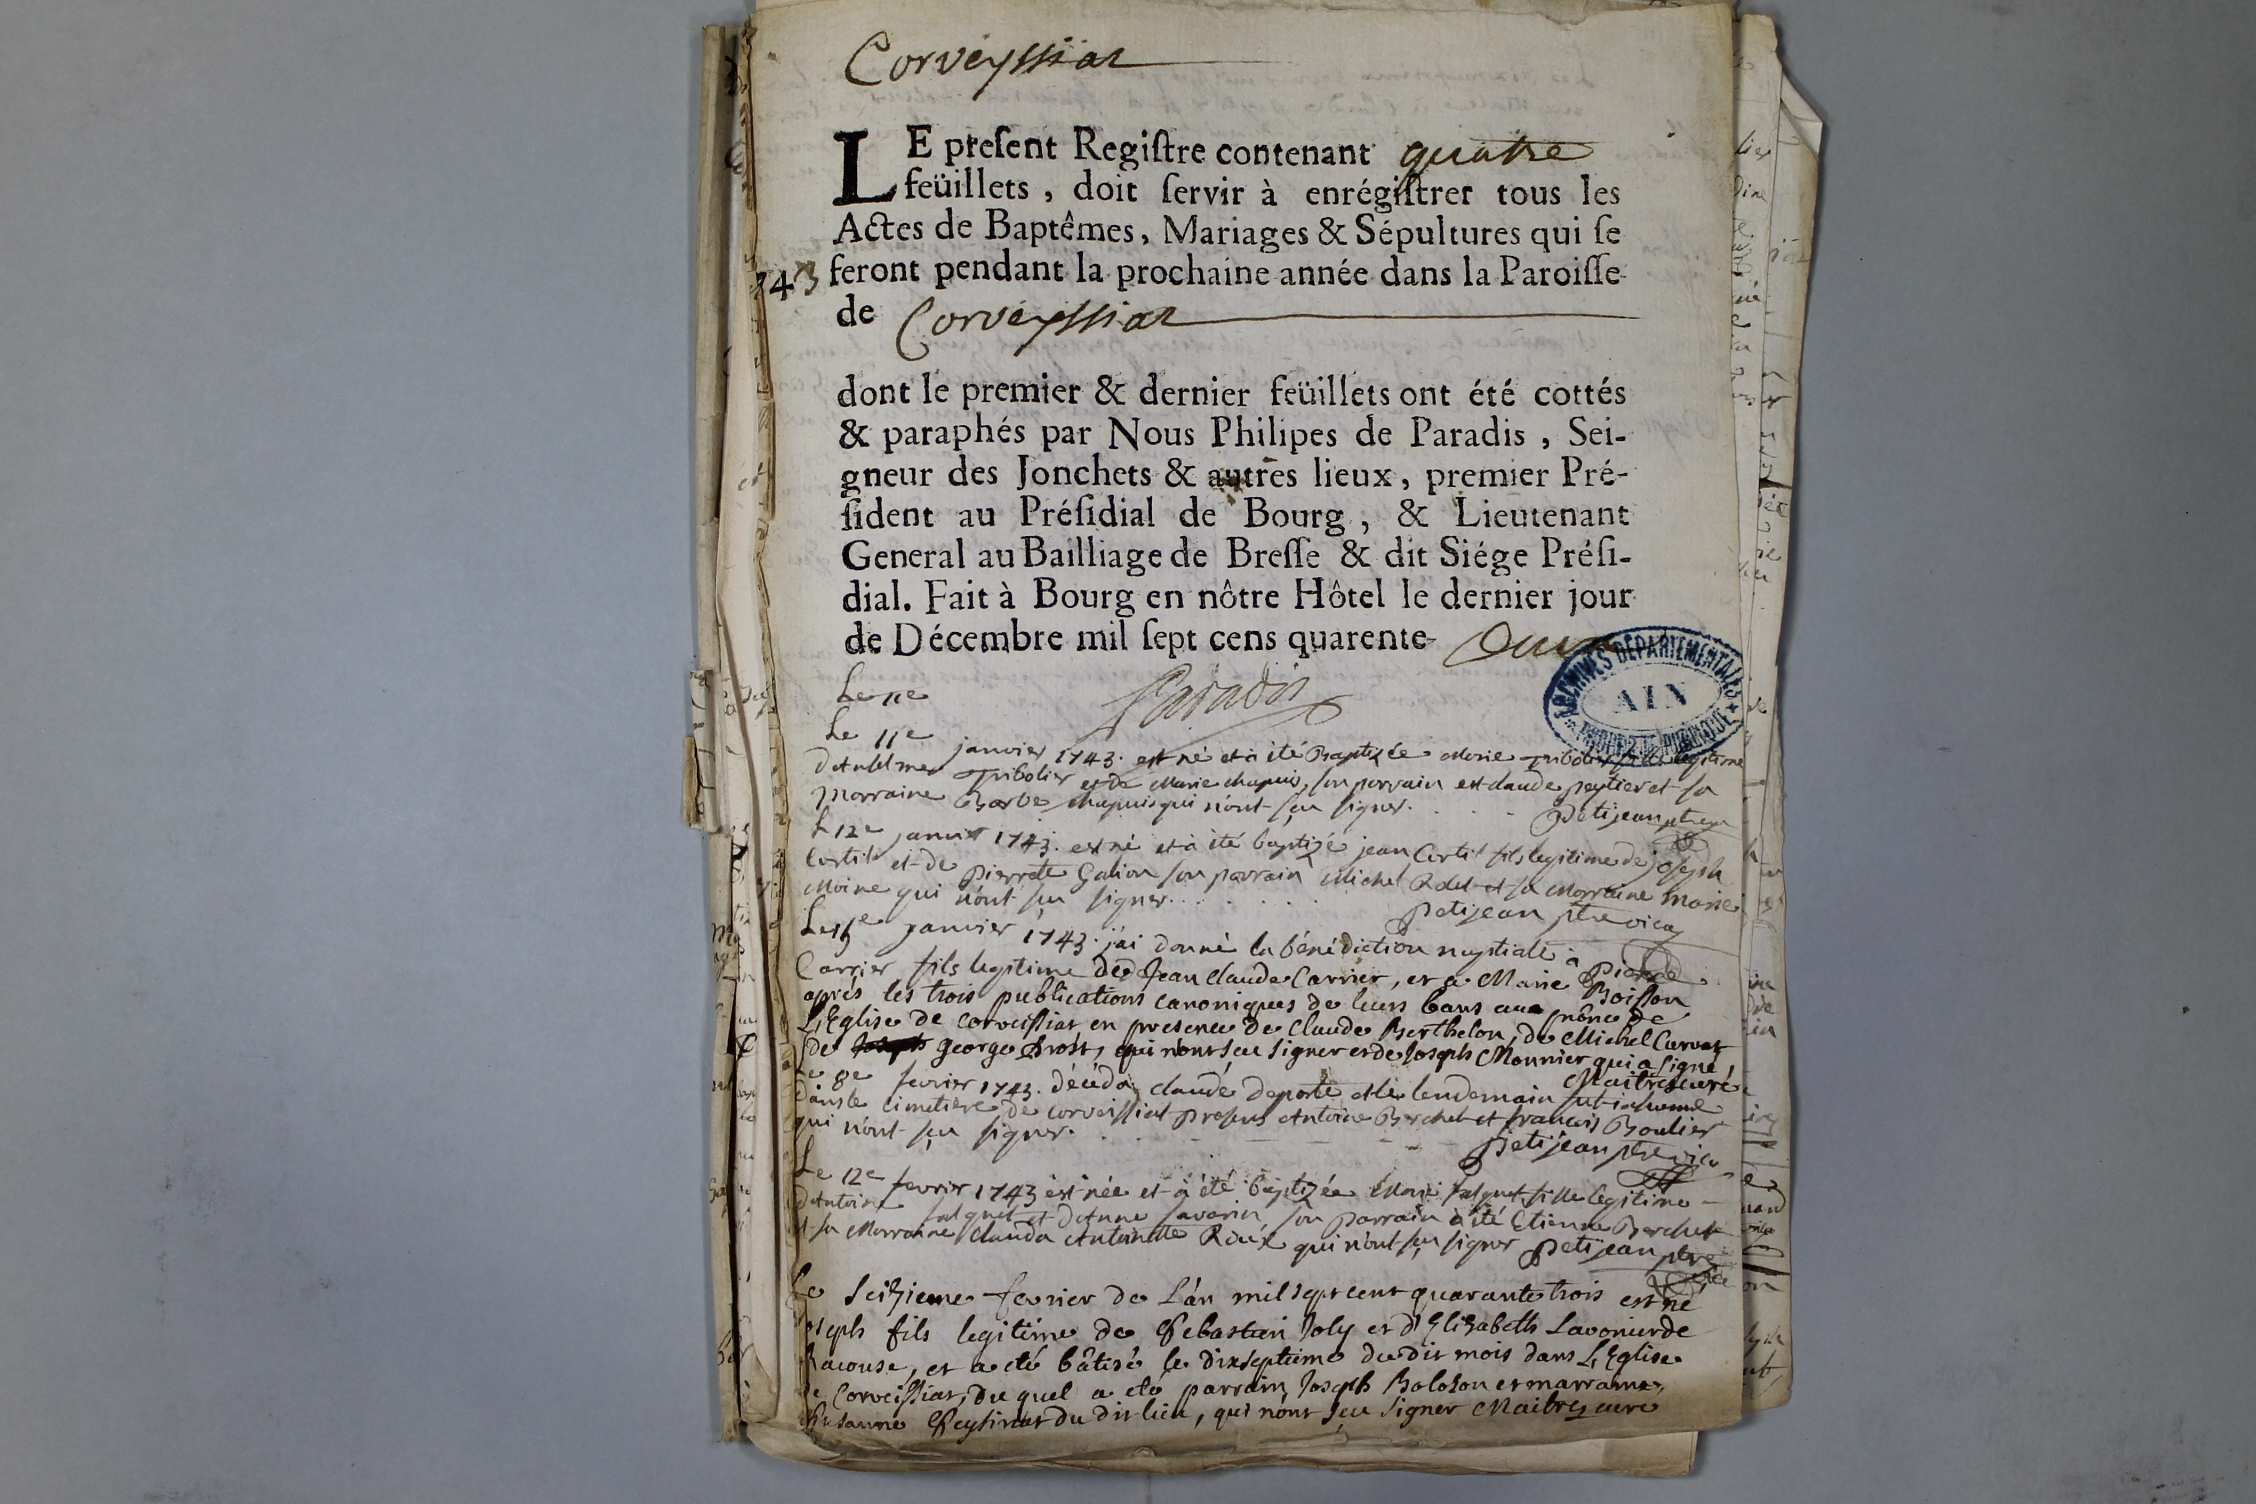 Corveyssiat
LE preſent Regiſtre contenant quatre
feüillets, doit ſervir à enrégiſtrer tous les
Actes de Baptêmes, Mariages & Sépultures qui ſe
743 feront pendant la prochaine année dans la Paroiſſe
de Corveyssiat
dont le premier & dernier feüillets ont été cottés
& paraphés par Nous Philipes de Paradis, Sei-
gneur des Jonchets & autres lieux, premier Pré-
ſident au Préſidial de Bourg, & Lieutenant
General au Bailliage de Breſſe & dit Siége Préſi-
dial. Fait à Bourg en nôtre Hôtel le dernier jour
de Décembre mil ſept cens quarente-
ARCHIVES DÉPARTEMENTALES
AIN
Le 11e
Paradis
Le 11e janvier 1743. est né et à été Baptizée Marie legitime
Tribolier et de Marie chapuis, son parrain est claude et sa
marraine Barbe chapuis qui n'ont sçu signer. Petijean
Le 12e janvier 1743. est né et à été baptizé jean Cortil fils legitime de joseph
Cortil et de pierrette Galion son parrain Michel et sa Marraine marie
Moine qui n'ont sçu signer. Petijean ptre vica
janvier 1743. j'ai donné la bénédiction nuptiale à pierre
Carrier fils legitime de Jean claude Carrier, et a Marie Boisson
aprés les trois publications canoniques de leurs bans au prône de
L'Eglise de corveissiat en presence de Claude Berthelon, de Michel Curvat
de george Brost, qui n'ont seu signer et de Joseph Monnier qui a signé,
Maitre curé
Le 8e fevrier 1743. décéda claude deporte et le lendemain fut inhumé
dans le cimetiere de corveissiat presens Antoine Berchet et françois Boulier
qui n'ont sçu signer. Petijean ptre vica
Le 12e fevrier 1743 est née et à été baptizée Marie falquet fille legitime
d'Antoine falquet et d'Anne savarin son parrain à été Etienne Berchet
et sa Marraine Clauda Antoinette Roux qui n'ont sçu signer Petijean ptre
Le Seizieme fevrier de L'an mil sept cent quarante trois est né
oseph fils legitime de Sebastien Joly et d'Elizabeth Lavonier de
Racouse, et a eté bâtisé le dixseptieme du dit mois dans L'Eglise
de Corveissiat, du quel a eté parrain Joseph Bolozon et marraine
Susanne du dit lieu, qui n'ont sçu signer Maitre curé